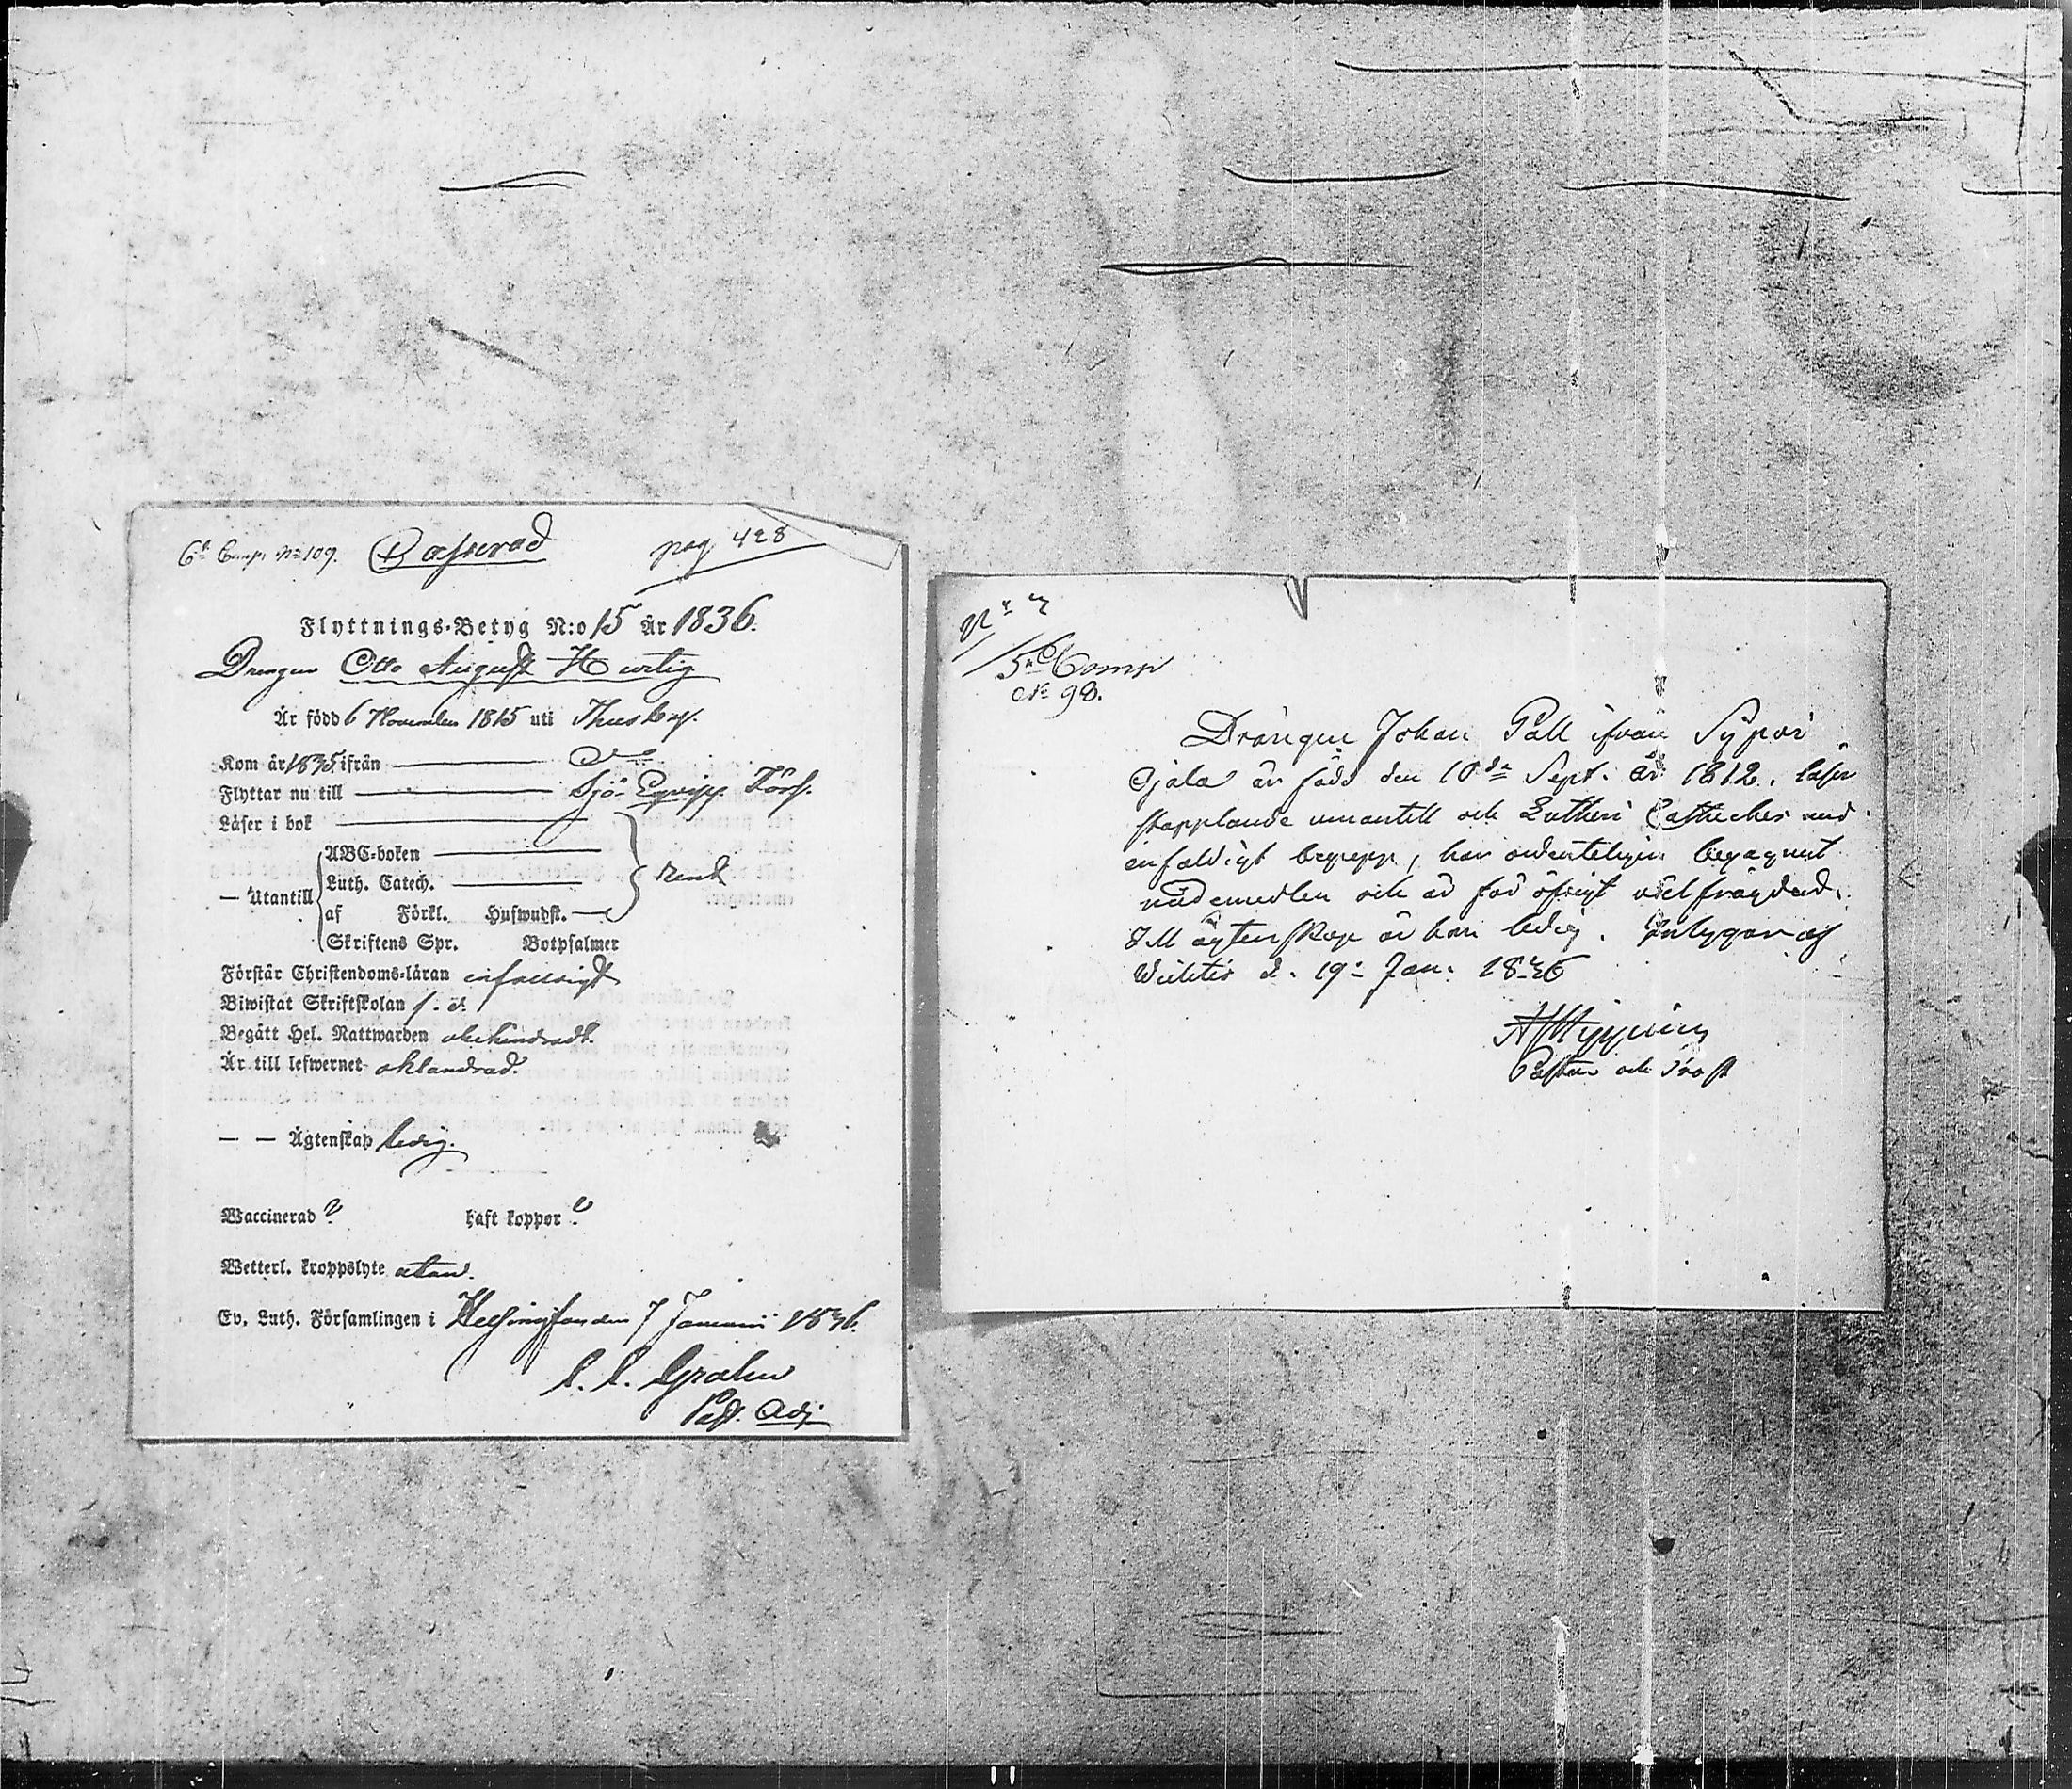 6te Comp. No 109. Casserad pag 428
Flyttnings-Betyg N:o 15 År 1836.
Drengen Otto August Hurtig
Är född 6 November 1815 uti Thusby.
Kom år 1835 ifrån
Flyttar nu till Sjö-Equipp Förs.
Läser i bok
— Utantill ABC-boken
Luth. Catech. rent
af Förkl. Huswudst.
Skriftens Spr. Botpsalmer
Förstår Christendoms-läran enfalldigt
Biwistat Skriftskolan
Begått Hel. Nattwarden obehindradt.
Är till lefwernet oklandrad.
— — Ägtenskap ledig.
Waccinerad ? haft koppor ?
Wetterl. kroppslyte utan.
Ev. Luth. Församlingen i Helsingfors den 7 Januarii 1836.
Past. Adj
No 7
5te Comp
No 98.
Drängen Johan Pall ifrån
är född den 10de Sept. år 1812, läser
stapplande innantill och Lutheri Catheches med
enfaldigt begrepp, har ordenteligen begagnat
nådemedlen och är för öfrigt välfrägdad.
Till ägtenskap är han ledig. Intygar af
Wichtis d. 19 Jan. 1836
Pastor och Prost